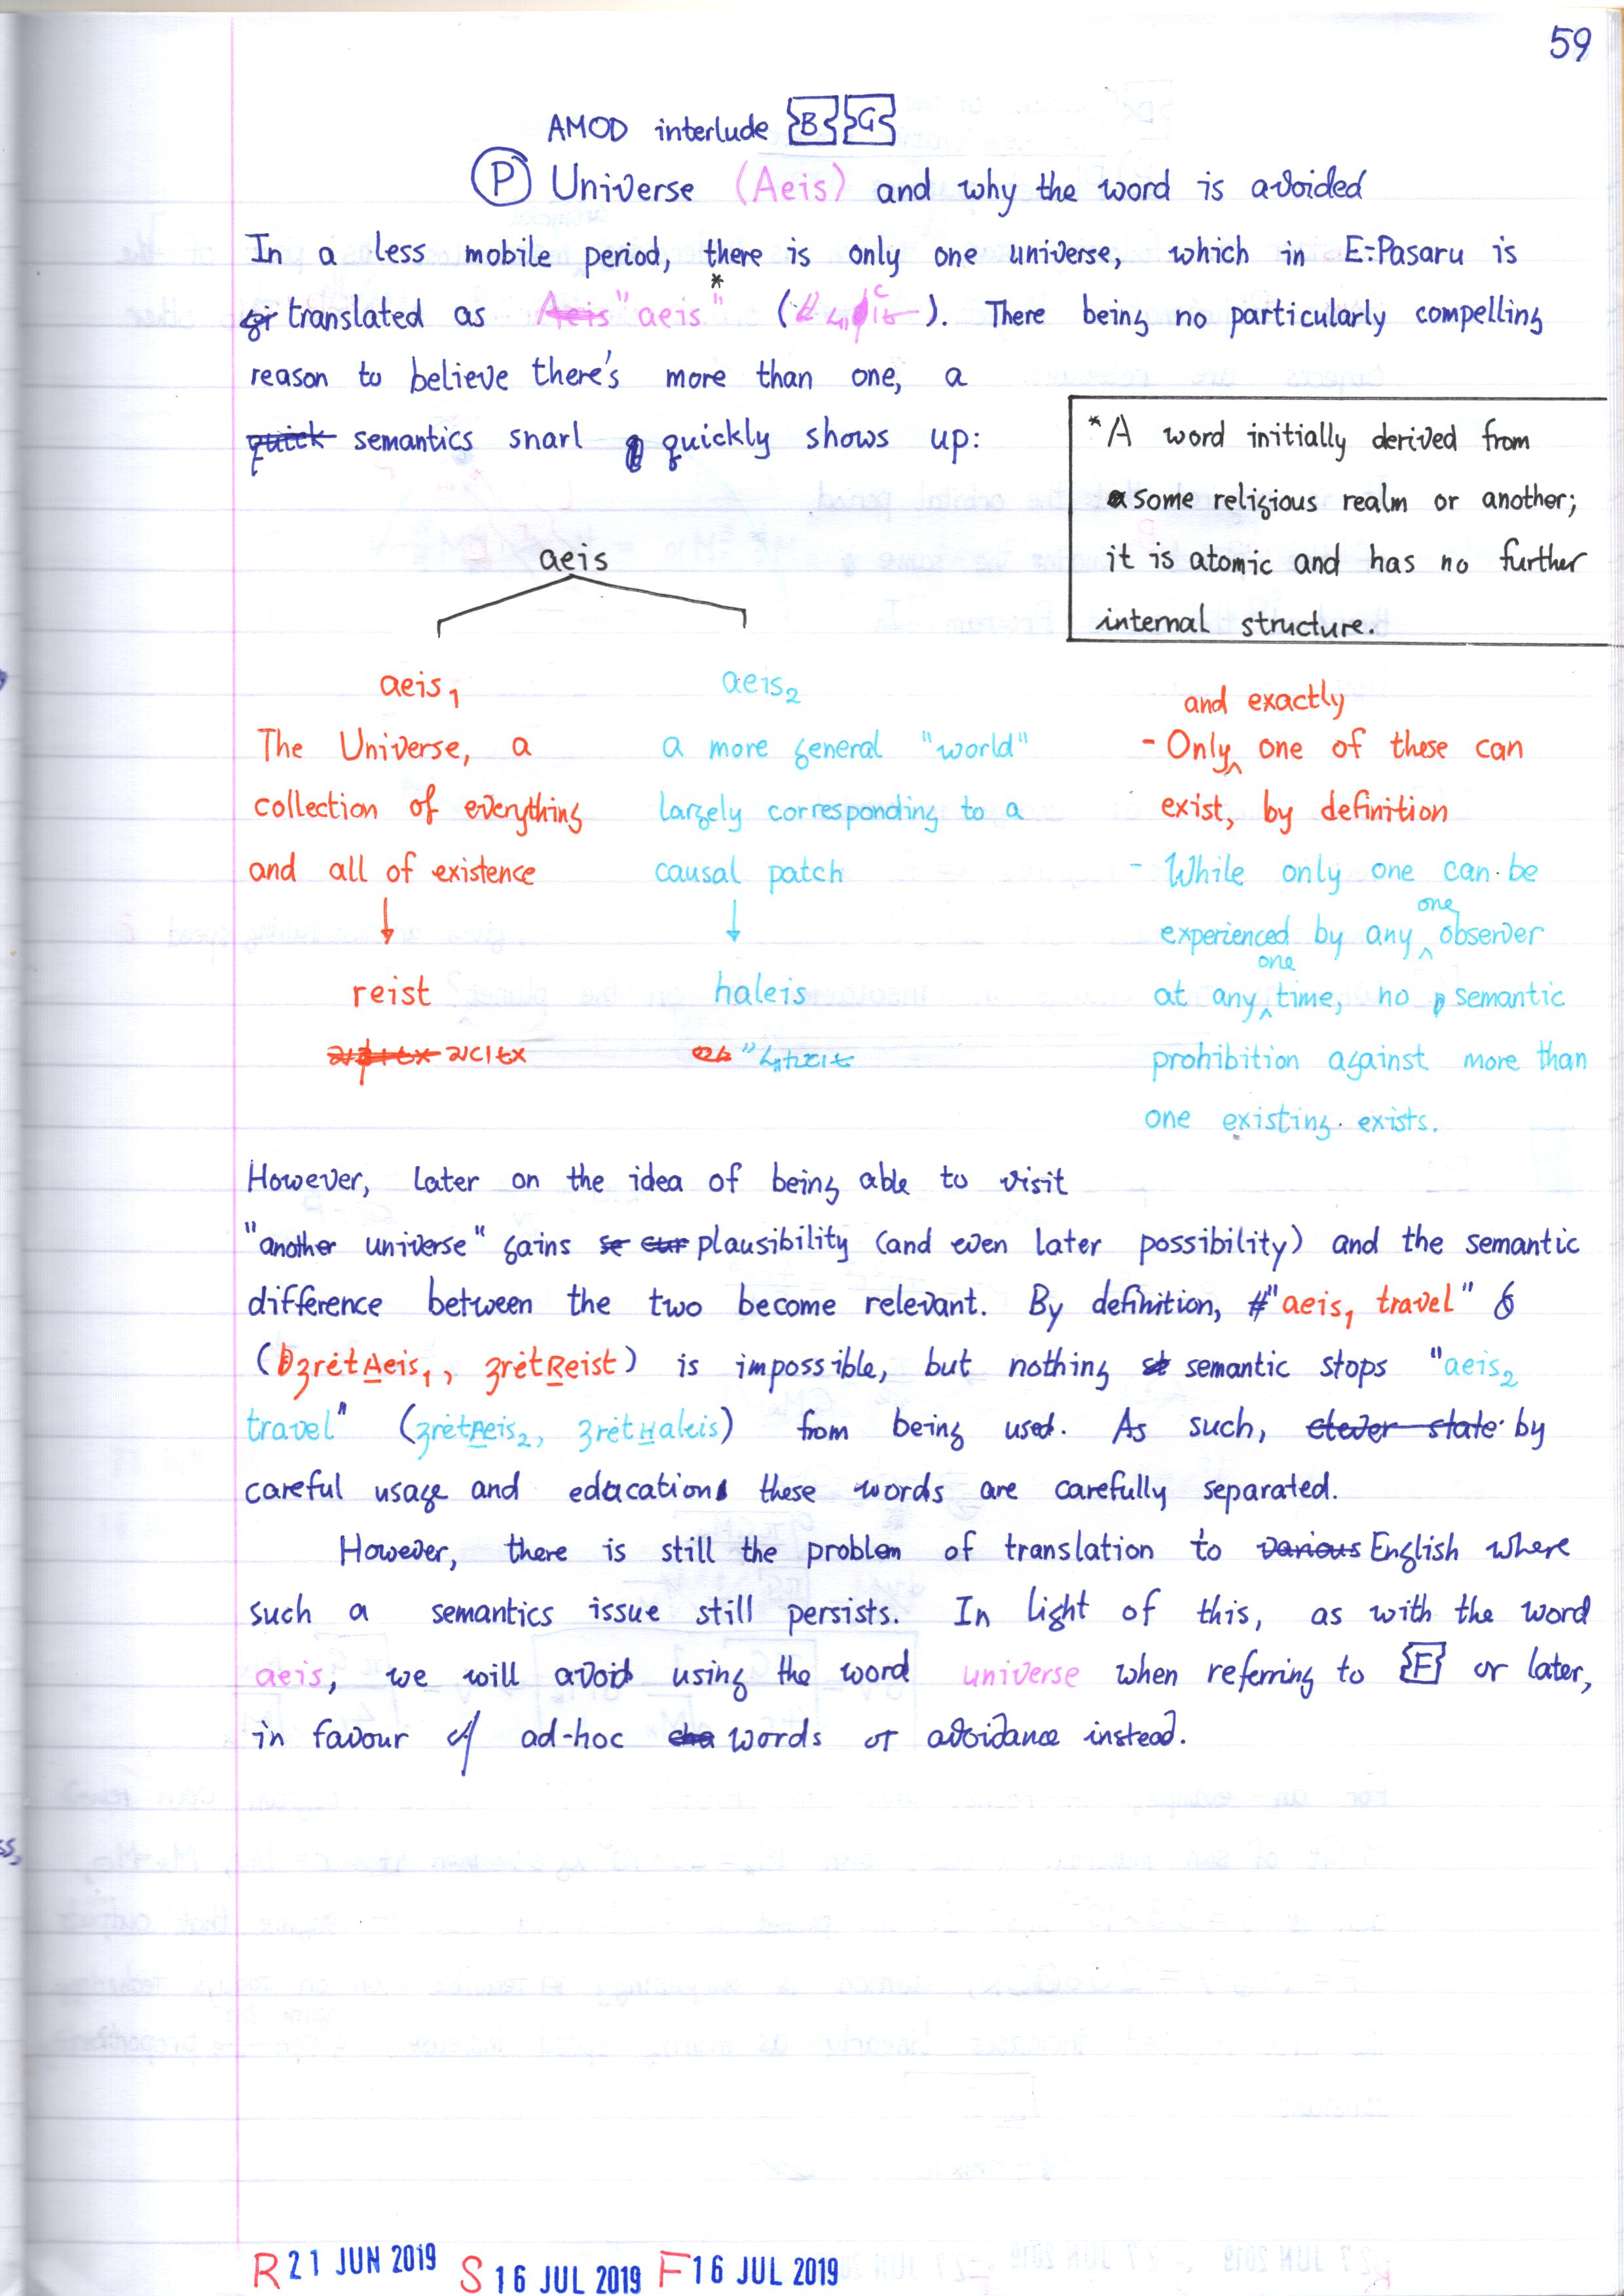 59
AMOD interlude B G
P Universe (Aeis) and why the word is avoided
In a less mobile period, there is only one universe, which in E:Pasaru is
translated as Aeis "aeis"* ( ). There being no particularly compelling
reason to believe there's more than one, a
quick semantics snarl quickly shows up:
*A word initially derived from
some religious realm or another;
it is atomic and has no further
internal structure.
aeis
aeis1
The Universe, a
collection of everything
and all of existence
↓
reist
aeis2
a more general "world"
largely corresponding to a
causal patch
↓
haleis
- Only and exactly one of these can
exist, by definition
- While only one can be
experienced by any one observer
at any one time, no semantic
prohibition against more than
one existing exists.
However, later on the idea of being able to visit
"another universe" gains se cur plausibility (and even later possibility) and the semantic
difference between the two become relevant. By definition, "aeis1 travel"
(ʒrétAeis1, ʒrétReist) is impossible, but nothing st semantic stops "aeis2
travel" (ʒrétAeis2, ʒrétHaleis) from being used. As such, clever state by
careful usage and education these words are carefully separated.
However, there is still the problem of translation to various English where
such a semantics issue still persists. In light of this, as with the word
aeis, we will avoid using the word universe when referring to F or later,
in favour of ad-hoc words or avoidance instead.
R 21 JUN 2019 S 16 JUL 2019 F 16 JUL 2019